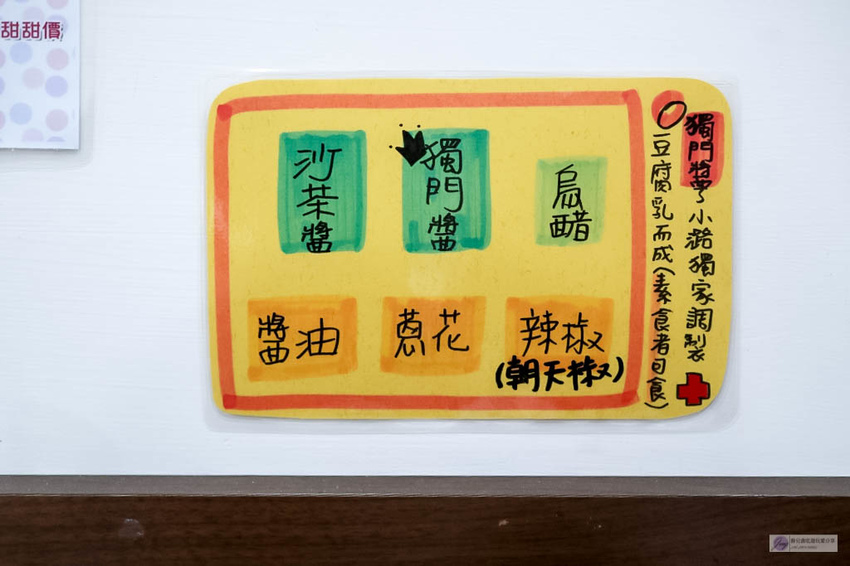 甜甜價
沙茶醬
獨門醬
烏醋
醬油
蔥花
辣椒
(朝天椒)
獨門醬 小潞獨家調製
豆腐乳而成(素食者可食)